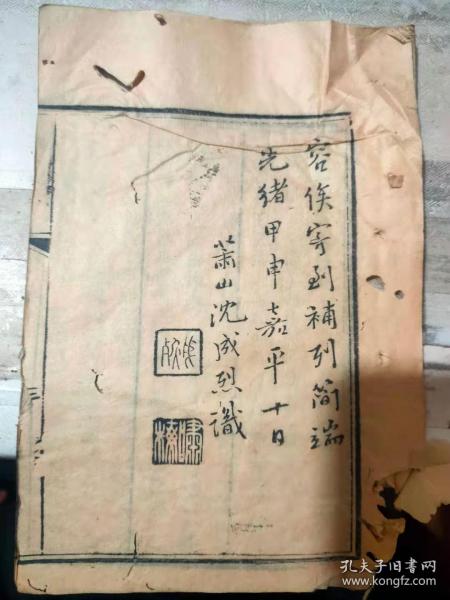 容俟寄到補列簡端
光緒甲申嘉平十日
蕭山沈成烈識
孔夫子旧书网
www.kongfz.com